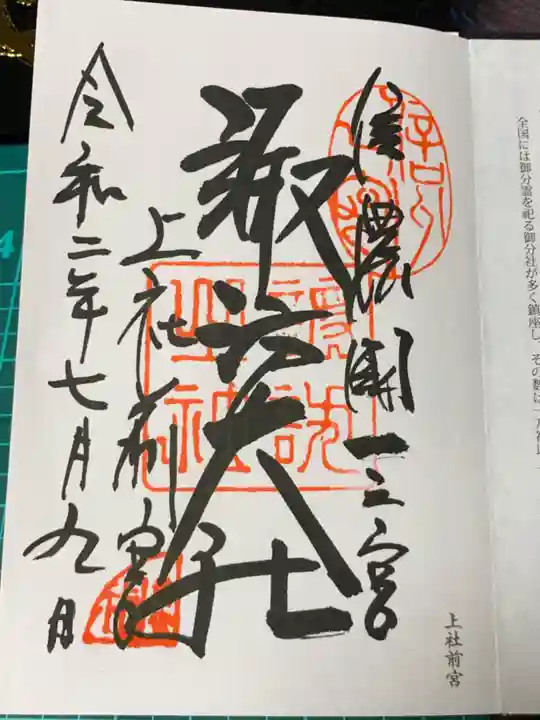 全国には御分霊を祀る御分社が多く鎮座し、その数は一万有余
信濃國一之宮
諏訪大社
上社前宮
令和二年七月九日
上社前宮